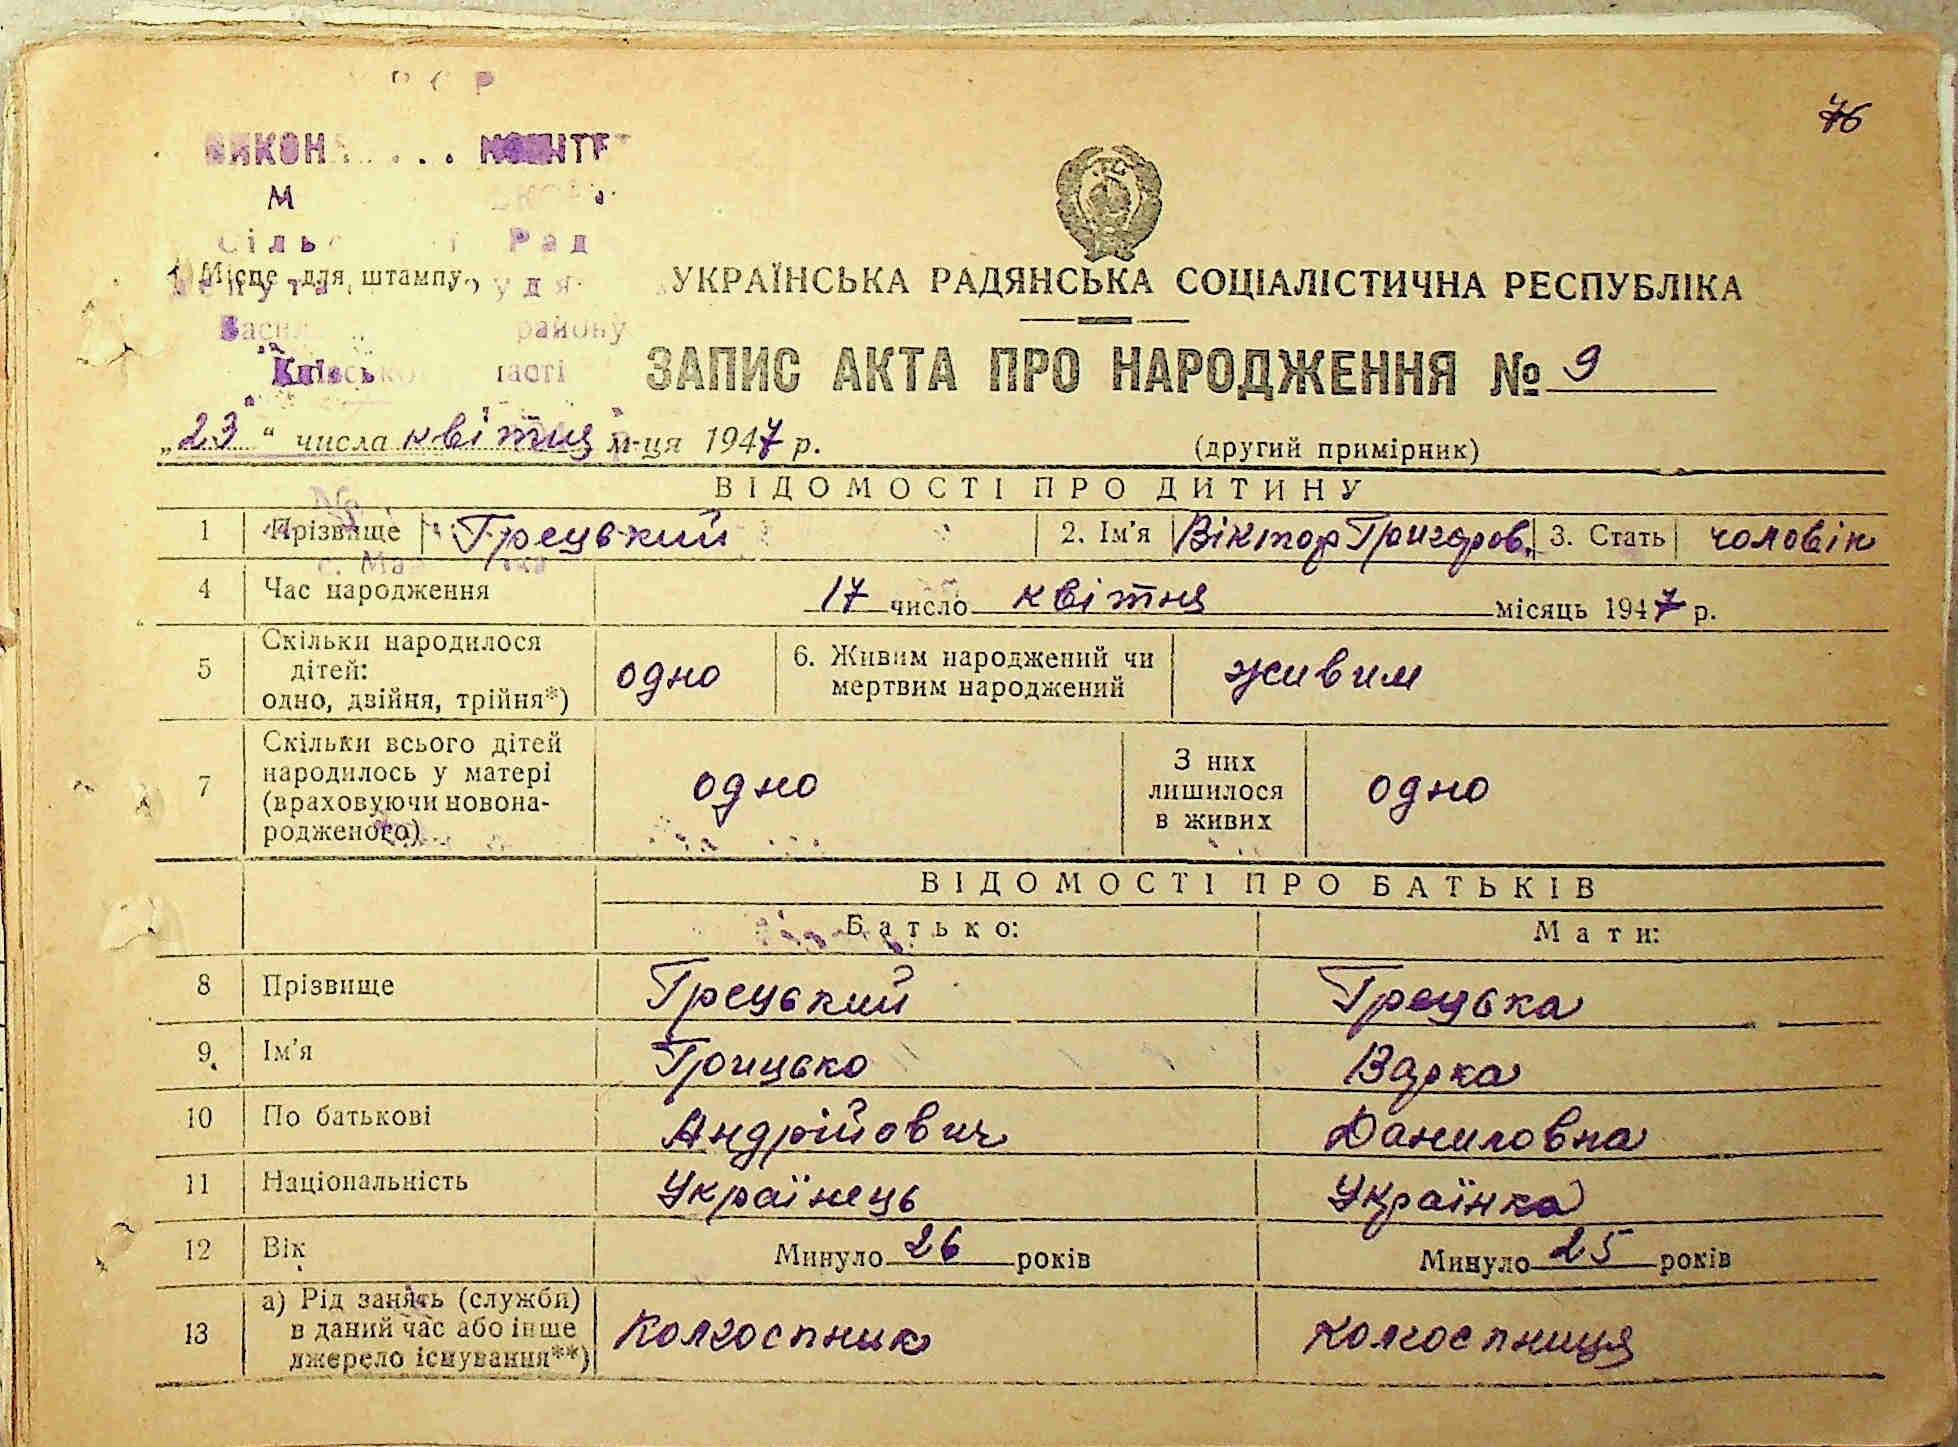 76
Місце для штампу
району
УКРАЇНСЬКА РАДЯНСЬКА СОЦІАЛІСТИЧНА РЕСПУБЛІКА
ЗАПИС АКТА ПРО НАРОДЖЕННЯ № 9
„23“ числа квітня м-ця 1947 р.
(другий примірник)
ВІДОМОСТІ ПРО ДИТИНУ
1 Прізвище Грецький 2. Ім'я Віктор Григоров. 3. Стать чоловік
4 Час народження 17 число квітня місяць 1947 р.
5 Скільки народилося
дітей:
одно, двійня, трійня*)
одно
6. Живим народжений чи
мертвим народжений
живим
7 Скільки всього дітей
народилось у матері
(враховуючи новона-
родженого)
одно
З них
лишилося
в живих
одно
ВІДОМОСТІ ПРО БАТЬКІВ
Батько: Мати:
8 Прізвище Грецький Грецька
9 Ім'я Грицько Варка
10 По батькові Андрійович Даниловна
11 Національність Українець Українка
12 Вік Минуло 26 років Минуло 25 років
13 а) Рід занять (служби)
в даний час або інше
джерело існування**)
Колгоспник колгоспниця